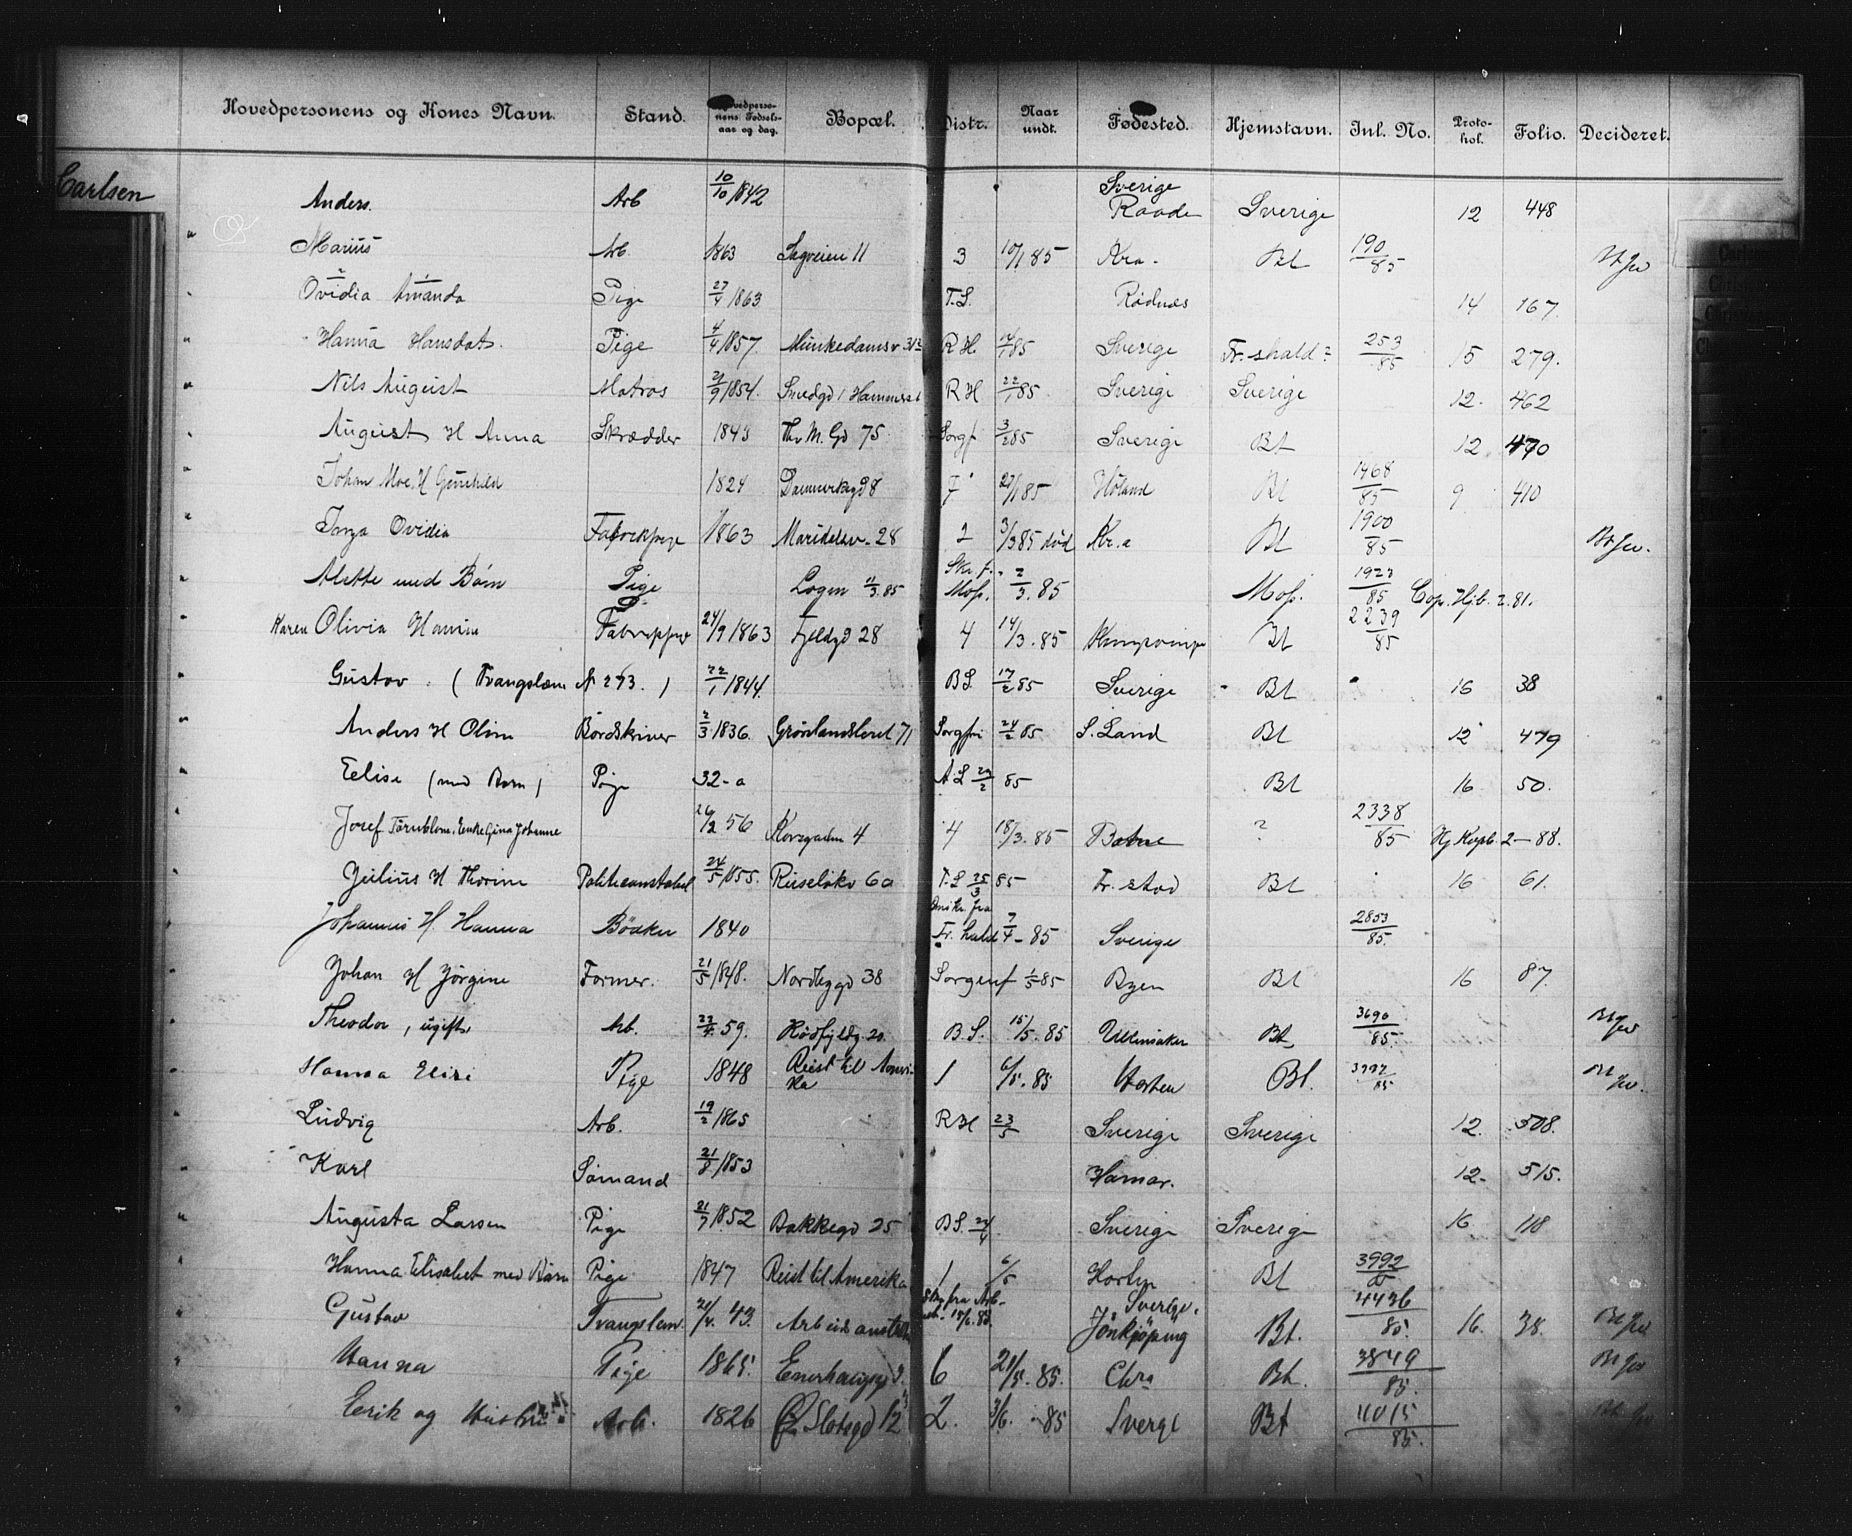 Hovedpersonens og Kones Navn. Stand. Hovedpersonens Fødselsaar og dag. Bopæl. Distr. Naar undt. Fødested. Hjemstavn. Inl. No. Protokol. Folio. Decideret.
Carlsen Anders. Arb 10/10 1842 Sverige Raade Sverige 12 448
" Marius Arb. 1863 Sagveien 11 3 10/1 85 Kra. Bt 190/85 Bt Jw
" Ovidia Amanda Pige 27/4 1863 T.S. Rødnæs 14 167.
" Hanna Hansdat. Pige 4/4 1857. Munkedamsv 31 R H 85 Sverige Fr.shald? 253/85 15 279.
" Nils August Matros 9 1854. Smedgd R H 22/1 85 Sverige Sverige 12. 462
" August H Anna Skrædder 1843 Thv M. Gd 75. Sorgf 3/2 85 Sverige Bt 12 470
" Johan Moe H Gunhild 1824 Danmarksgd 8 7 27/1 85 Høland Bt 1468/85 9 410
" Inga Ovidia Fabrikpige 1863 Maridalsv. 28 2 3/3 85 død Kr.a Bt 1900/85 Bt Jw.
" Alette med Børn Pige Logen 11/3.85 Skr. f. Mos. 2/3. 85 Mos. 1923/85 Cop. Hjb. 2. 81.
" Karen Olivia Hanine Fabrikpige 24/9 1863 Fjeldgd 28 4 14/3. 85 Kongsvinger Bt 2239/85
" Gustav. (Tvangslem N 273.) 22/1 1844. B S. 17/2 85 Sverige Bt 16 38
" Anders H Oline Bordskriver 2/3 1836. Grønlandsleret 71 Sorgfri 24/2 85 S. Land Bt 12 479
" Elise (med Barn) Pige 32-a A S 2 85 Bt 16 50.
" Josef Enke Gina Johanne 26/2 56 Korsgaden 4 4 18/3. 85 ? 2338/85 Hj Kopb. 2-88.
" Julius H Thorine Politikonstabel 24/5 1855. Ruseløkv 6a T.S 25/3 85 Fr.stad Bt 16 61.
" Johannes H. Hanna Bødker 1840 fra Fr.hald 7/4-85 Sverige 2853/85.
" Johan H Jørgine Former. 21/5 1848. Nordbygd 38 Sorgenf 1/5 85 Byen Bt 16 87.
" Theodor, ugift, Arb. 23/4 59. Rødfyldg. 20. B.S. 15/5. 85 Ullensaker Bt 3690/85. Bt Jw
" Hanna Elise Pige 1848 Reist til Amerika 1 6/5. 85 Horten Bt. 85 Bt Jw.
" Ludvig Arb. 19/2 1865 R H 23/5 Sverige Sverige 12. 508.
" Karl Sømand 21/8 1853 Hamar. 12. 515.
" Augusta Larsen Pige 21/7 1852 Bakkegd 25 B S. 24/4 Sverige Sverige 16 118
" Hanna Elisabet med Barn Pige 1847 Reist til Amerika 1 6/5 Horten Bt 3992
" Gustav Tvangslem. 43. Arbeidsanstalten fra Arb. Sverige. Jönkjöping Bt. 4436/85. 16. 38. Bt Jw
" Hanna Pige 1865. Enerhaugsg 3. 6 21/5. 85. Chra Bt. 3849/85. Bt Jw
" Erik og Hustru Arb. 1826 Slotsgd 12 2. 3/6. 85 Sverge Bt 4015/85. Bt Jw